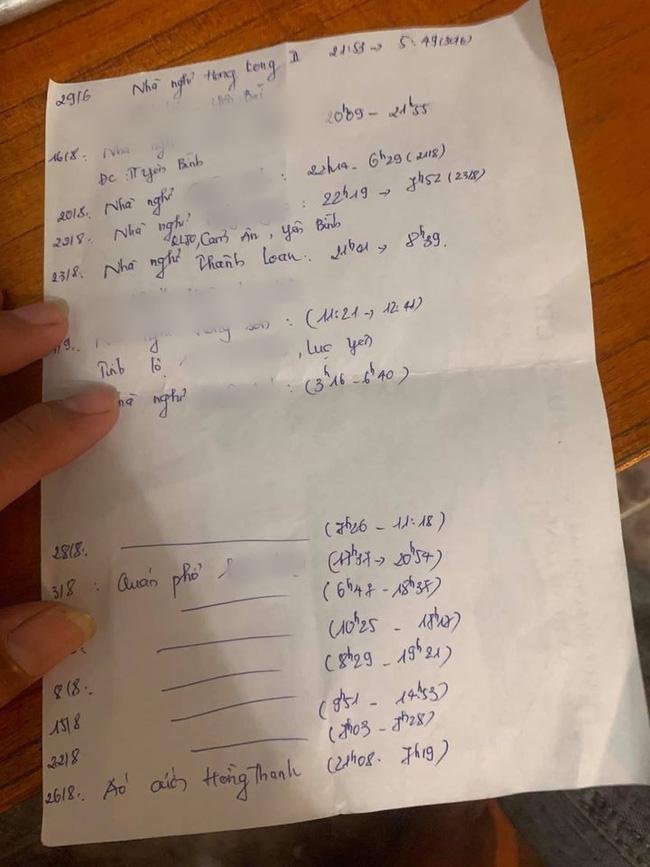 29/6 Nhà nghỉ Hong Kong II 21:53 → 5:49 (30/6)
16/8: Nhà nghỉ 20h09 - 21h55
ĐC: TT Yên Bình
20/8. Nhà nghỉ : 22h14 - 6h29 (21/8)
22/8. Nhà nghỉ : 22h19 → 7h52 (23/8)
QL70, Cảm Ân, Yên Bình
23/8. Nhà nghỉ Thành Loan: 21h01 → 8h39.
/9. : (11:21 → 12:41)
Tỉnh lộ , Lục Yên
Nhà nghỉ : (3h16 - 6h40)
28/8. (7h26 - 11:18)
3/8 : Quán phở (17h37 → 20h54)
(6h47 - 18h37)
(10h25 - 18h17)
8/8. (8h29 - 19h21)
15/8 (9h51 - 14:53)
22/8 (7h03 - 7h28)
26/8. Áo cưới Hồng Thanh (21h08 - 7h19)